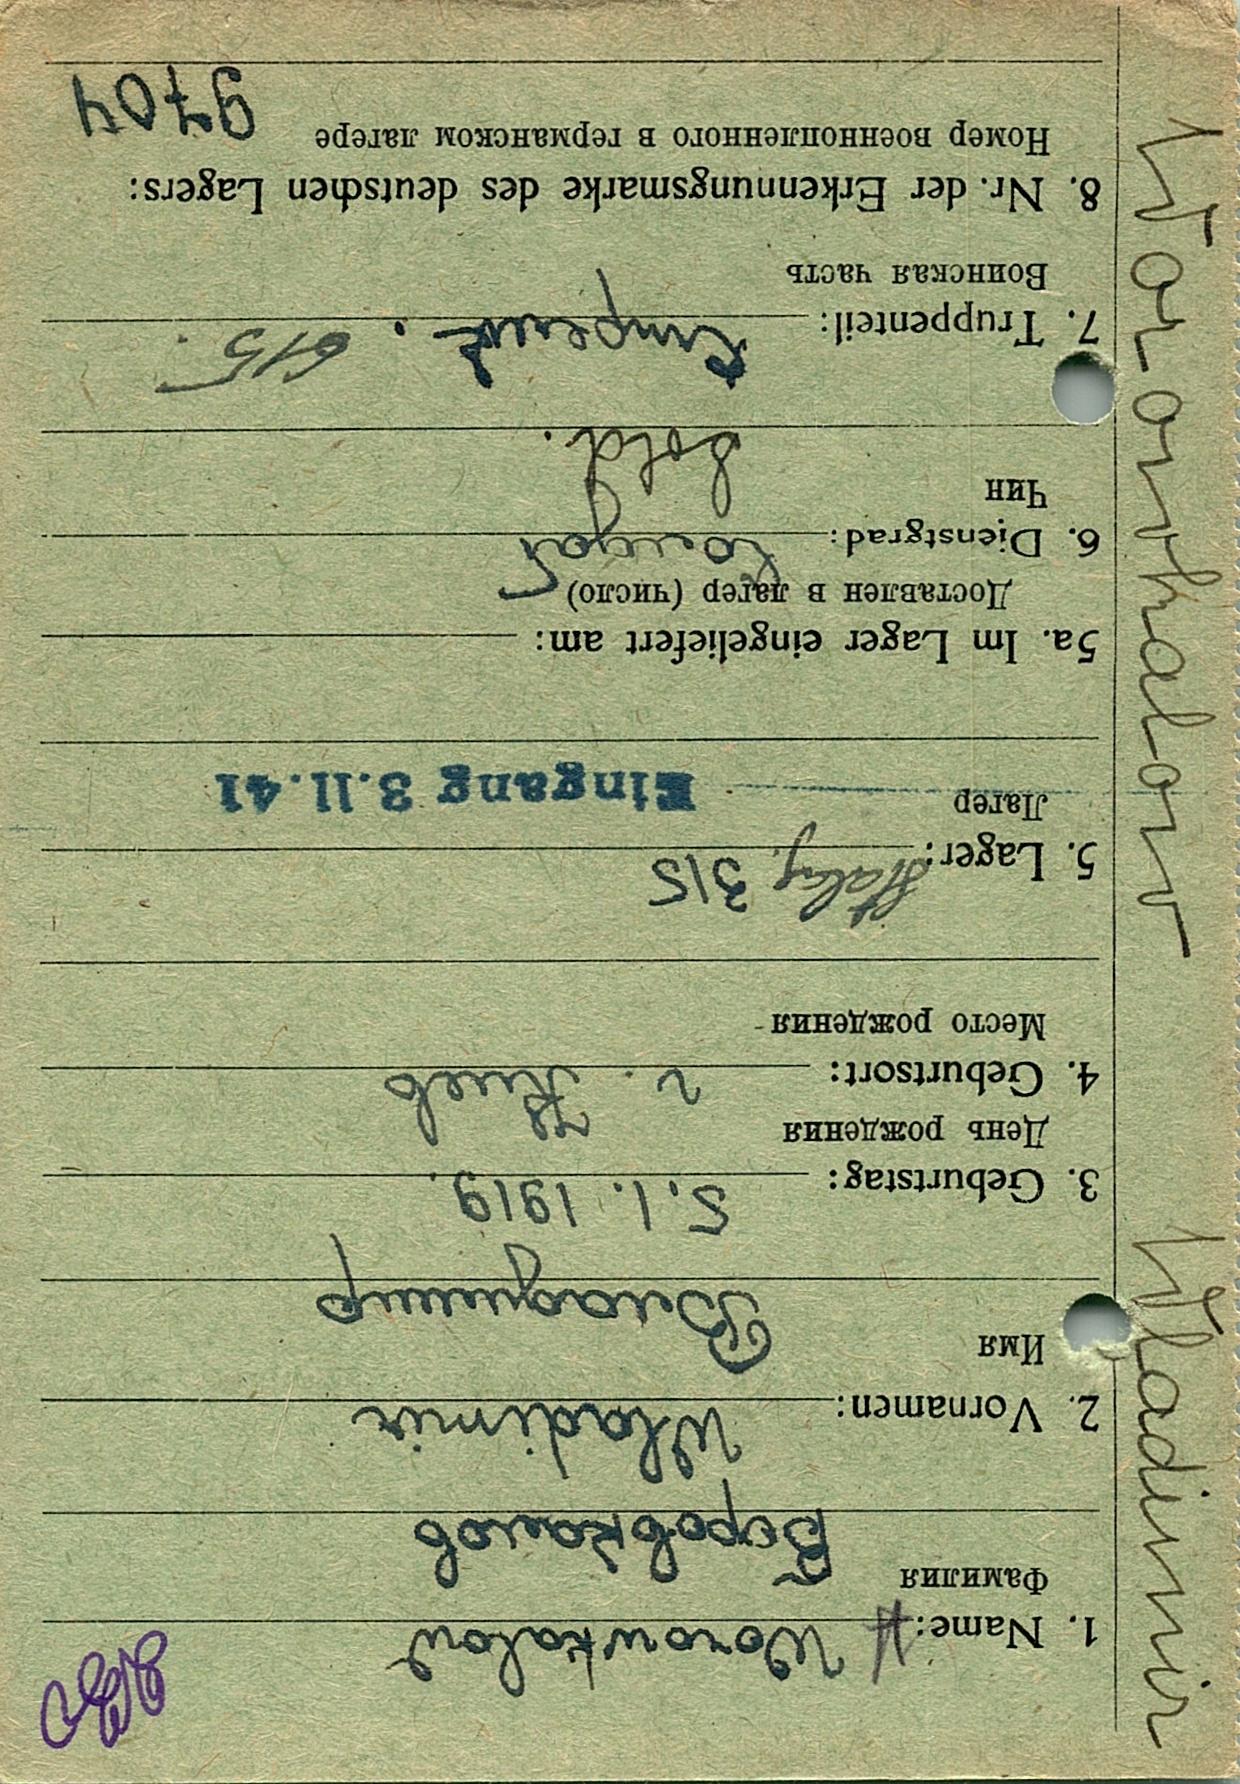 Worowkalow
1. Name:
Фамилия
Воровкалов
Wladimir
2. Vornamen:
Имя
Владимир
5.1.1919.
3. Geburtstag:
День рождения
г. Киев
4. Geburtsort:
Место рождения
Stalag. 315
5. Lager:
Лагер
Eingang 3.11.41
5a. Im Lager eingeliefert am:
Доставлен в лагер (число)
Солдат
6. Dienstgrad:
Чин
Sold.
615.
7. Truppenteil:
Воинская часть
8. Nr. der Erkennungsmarke des deutschen Lagers:
Номер военнопленного в германском лагере
9704
Worowkalow Wladimir